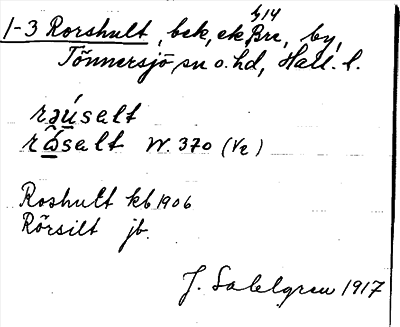 1-3 Rorshult, bek, ek, Bre, by,
614
Tönnersjö sn o. hd, Hall. l.
rəúsəlt
W. 370 (1/2)
Roshult kb 1906
Rörsilt jb.
J. Sahlgren 1917